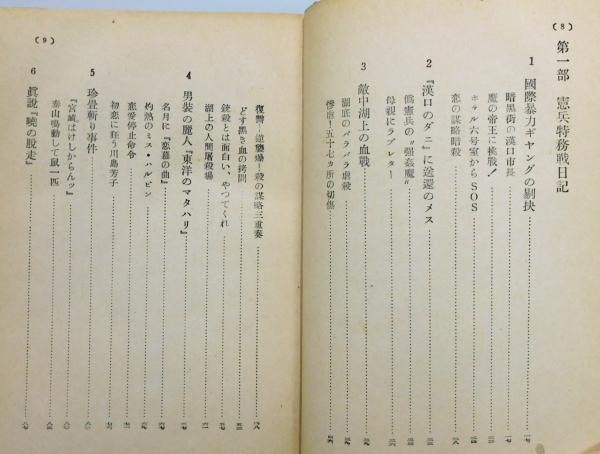 (8)
第一部 憲兵特務戦日記
1 國際暴力ギヤングの剔抉
暗黒街の漢口市長
魔の帝王に挑戰!
ホテル六号室からSOS
恋の謀略暗殺
2 『漢口のダニ』に送還のメス
僞憲兵の〝强姦魔〟
母親にラブレター
3 敵中湖上の血戰
湖底のバラバラ虐殺
慘虐!五十七カ所の切傷
(9)
復讐!
殺の謀略三重奏
どす黒き血の拷問
銃殺とは面白い、やつてくれ
湖上の人間屠殺場
4 男装の麗人『東洋のマタハリ』
名月に『悲墓の曲』
灼熱のミス・ハルビン
恋愛停止命令
初恋に狂う川島芳子
5 珍畳斬り事件
『宮城はけしからんッ』
泰山鳴動して鼠一匹
6 眞說『曉の脱走』